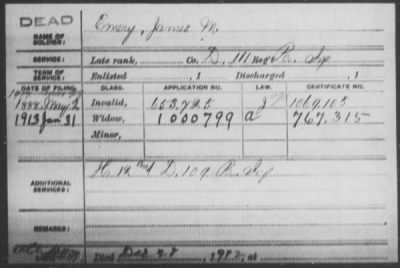 DEAD
NAME OF SOLDIER: Emery, James M.
SERVICE: Late rank, Co. D, 111 Reg't Pa. Inf
TERM OF SERVICE: Enlisted , 1 Discharged , 1
DATE OF FILING. CLASS. APPLICATION NO. LAW. CERTIFICATE NO.
1888 May 2 Invalid, 653,725 1069,105
1913 Jan 31 Widow, 1000799 a 767,315
Minor,
ADDITIONAL SERVICES: H. 12 D. 109 Pa. Inf
REMARKS:
Died Dec 28, 1912, at